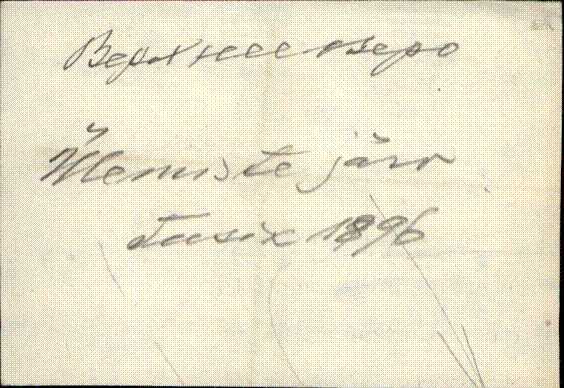 Верхнее озеро
Ülemiste järv
1896